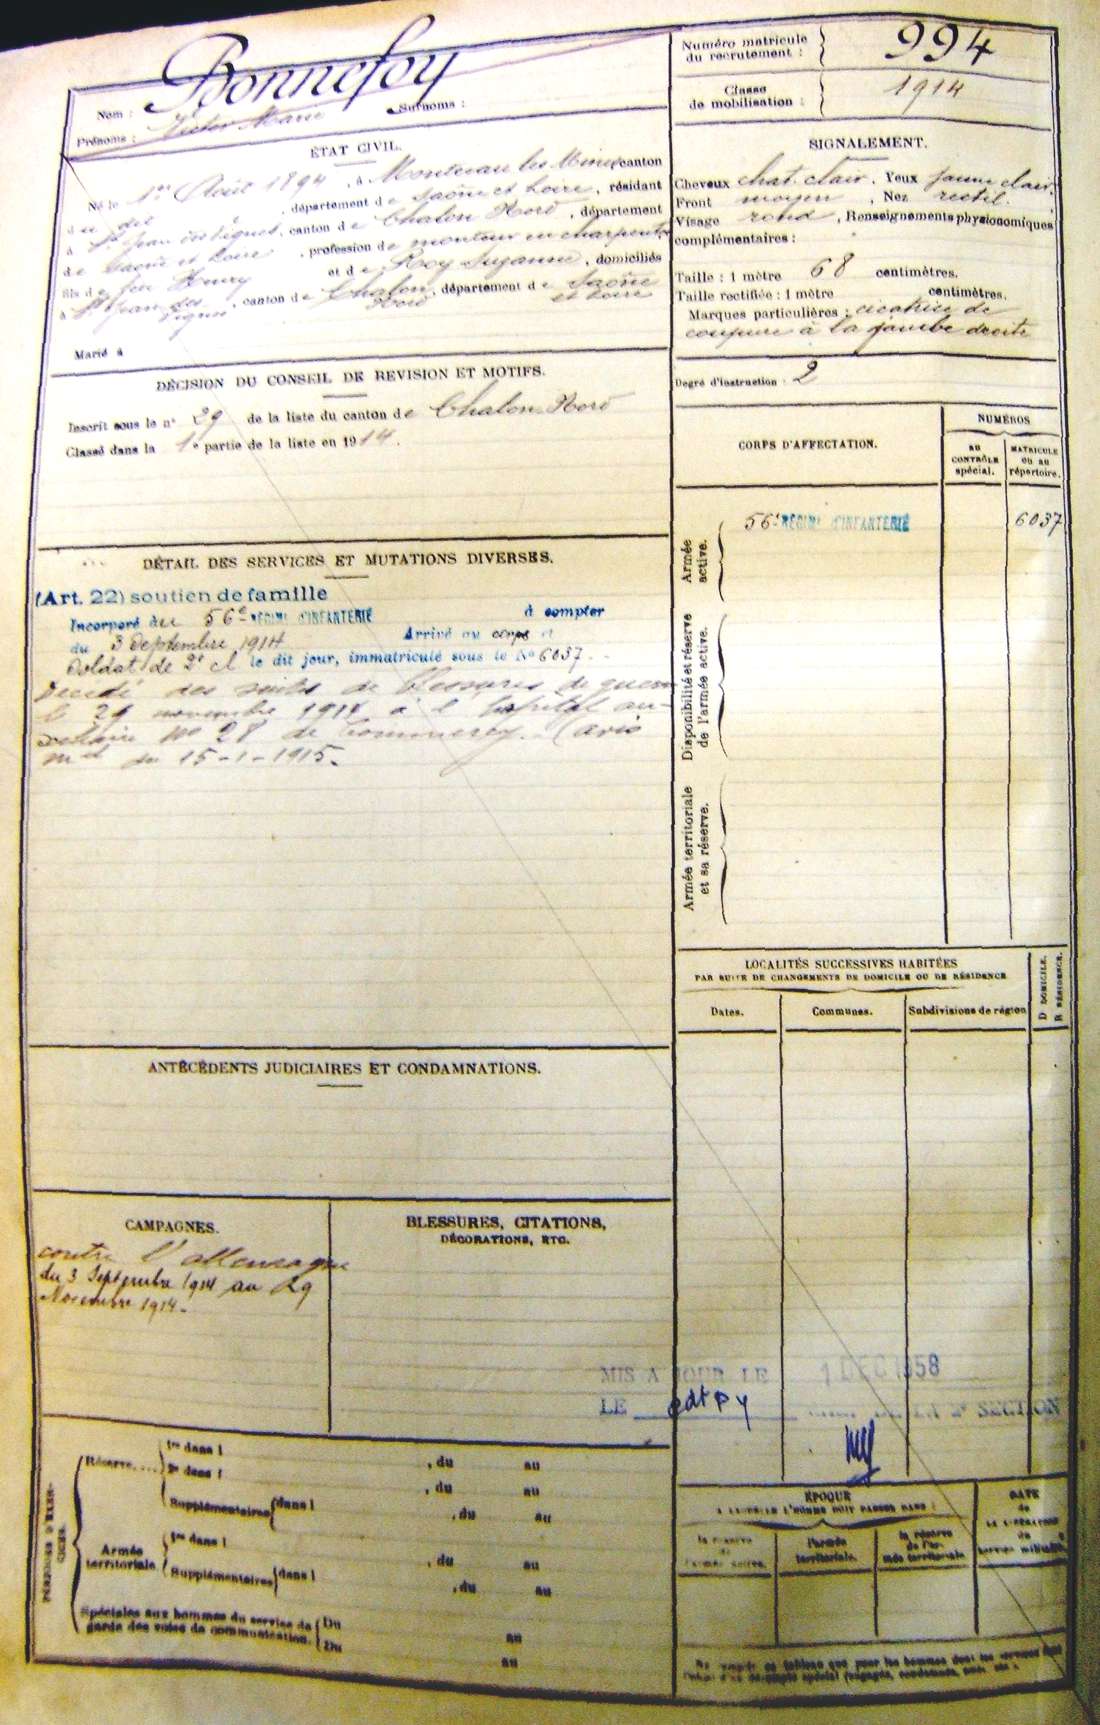 Nom : Bonnefoy
Prénoms : Victor Marie Surnoms :
Numéro matricule du recrutement : 994
Classe de mobilisation : 1914
ÉTAT CIVIL.
Né le 1er Août 1894, à Montceau les Mines canton
du dit, département de Saône et Loire, résidant
à St Jean des Vignes, canton de Chalon Nord, département
de Saône et Loire, profession de monteur en charpente
fils de feu Henry et de Roy Suzanne, domiciliés
à St Jean des Vignes, canton de Chalon Nord, département de Saône et Loire
Marié à
SIGNALEMENT.
Cheveux chat. clair. Yeux jaune clair.
Front moyen, Nez rectil.
Visage rond, Renseignements physionomiques
complémentaires :
Taille : 1 mètre 68 centimètres.
Taille rectifiée : 1 mètre centimètres.
Marques particulières : cicatrice de
coupure à la jambe droite
Degré d'instruction : 2
DÉCISION DU CONSEIL DE REVISION ET MOTIFS.
Inscrit sous le n° 29 de la liste du canton de Chalon Nord
Classé dans la 1e partie de la liste en 1914.
CORPS D'AFFECTATION.
NUMÉROS
AU CONTRÔLE spécial.
MATRICULE ou au répertoire.
Armée active.
56e RÉGIMt D'INFANTERIE 6037
Disponibilité et réserve de l'armée active.
Armée territoriale et sa réserve.
DÉTAIL DES SERVICES ET MUTATIONS DIVERSES.
(Art. 22) soutien de famille
Incorporé au 56e RÉGIMt D'INFANTERIE à compter
du 3 Septembre 1914 Arrivé au corps et
Soldat de 2e cl le dit jour, immatriculé sous le No 6037.
Décédé des suites de blessures de guerre
le 29 novembre 1914 à l'hôpital au-
xiliaire No 28 de Commercy. (avis
md du 15-1-1915.
LOCALITÉS SUCCESSIVES HABITÉES
PAR SUITE DE CHANGEMENTS DE DOMICILE OU DE RÉSIDENCE
Dates. Communes. Subdivisions de région
D DOMICILE.
R RÉSIDENCE.
ANTÉCÉDENTS JUDICIAIRES ET CONDAMNATIONS.
CAMPAGNES.
contre l'allemagne
du 3 Septembre 1914 au 29
Novembre 1914.
BLESSURES, CITATIONS,
DÉCORATIONS, ETC.
MIS A JOUR LE 1 DEC 1958
LE DE LA 2e SECTION
Réserve.... 1re dans l , du au
2e dans l , du au
Supplémentaires dans l , du au
Armée territoriale 1re dans l , du au
Supplémentaires dans l , du au
Spéciales aux hommes du service de
garde des voies de communication. Du au
Du au
ÉPOQUE
A LAQUELLE L'HOMME DOIT PASSER DANS :
la réserve de l'armée active.
l'armée territoriale.
la réserve de l'armée territoriale
DATE de LA LIBÉRATION du service militaire.